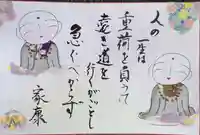 人の
一生は
重荷を負うて
遠き道を
行くがごとし
急ぐべからず
家康